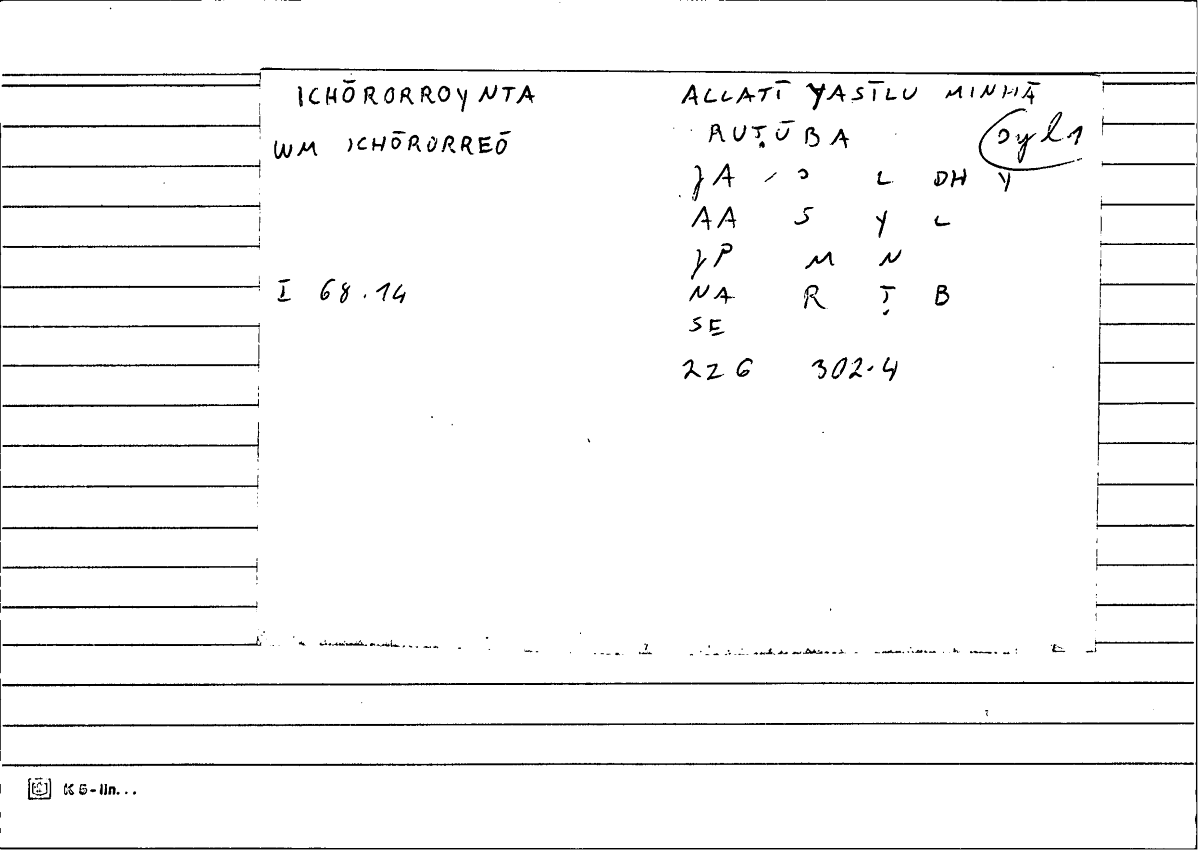 ICHŌRORROYNTA
WM ICHŌRORREŌ
I 68.14
ALLATĪ YASĪLU MINHĀ
RUṬŪBA
syl 1
L DH Y
AA S Y L
M N
NA R Ṭ B
SE
2 Z 6 302.4
K 5-lin...